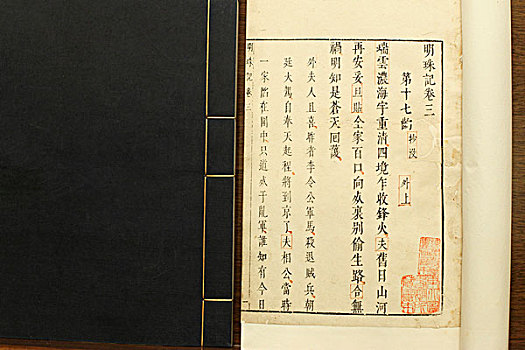 明珠記卷三
第十七齣 抄沒 外上
瑞雲濃海宇重清四境乍收鋒火夫舊日山河
再安妥旦貼全家百口向夾裏別偷生路合無
禍明知是蒼天回護
外夫人且喜李令公軍馬殺退賊兵朝
廷大駕自奉天起程將到京了夫相公當時
一家留在圍中只道死于亂軍誰知有今日
明珠記卷三
一